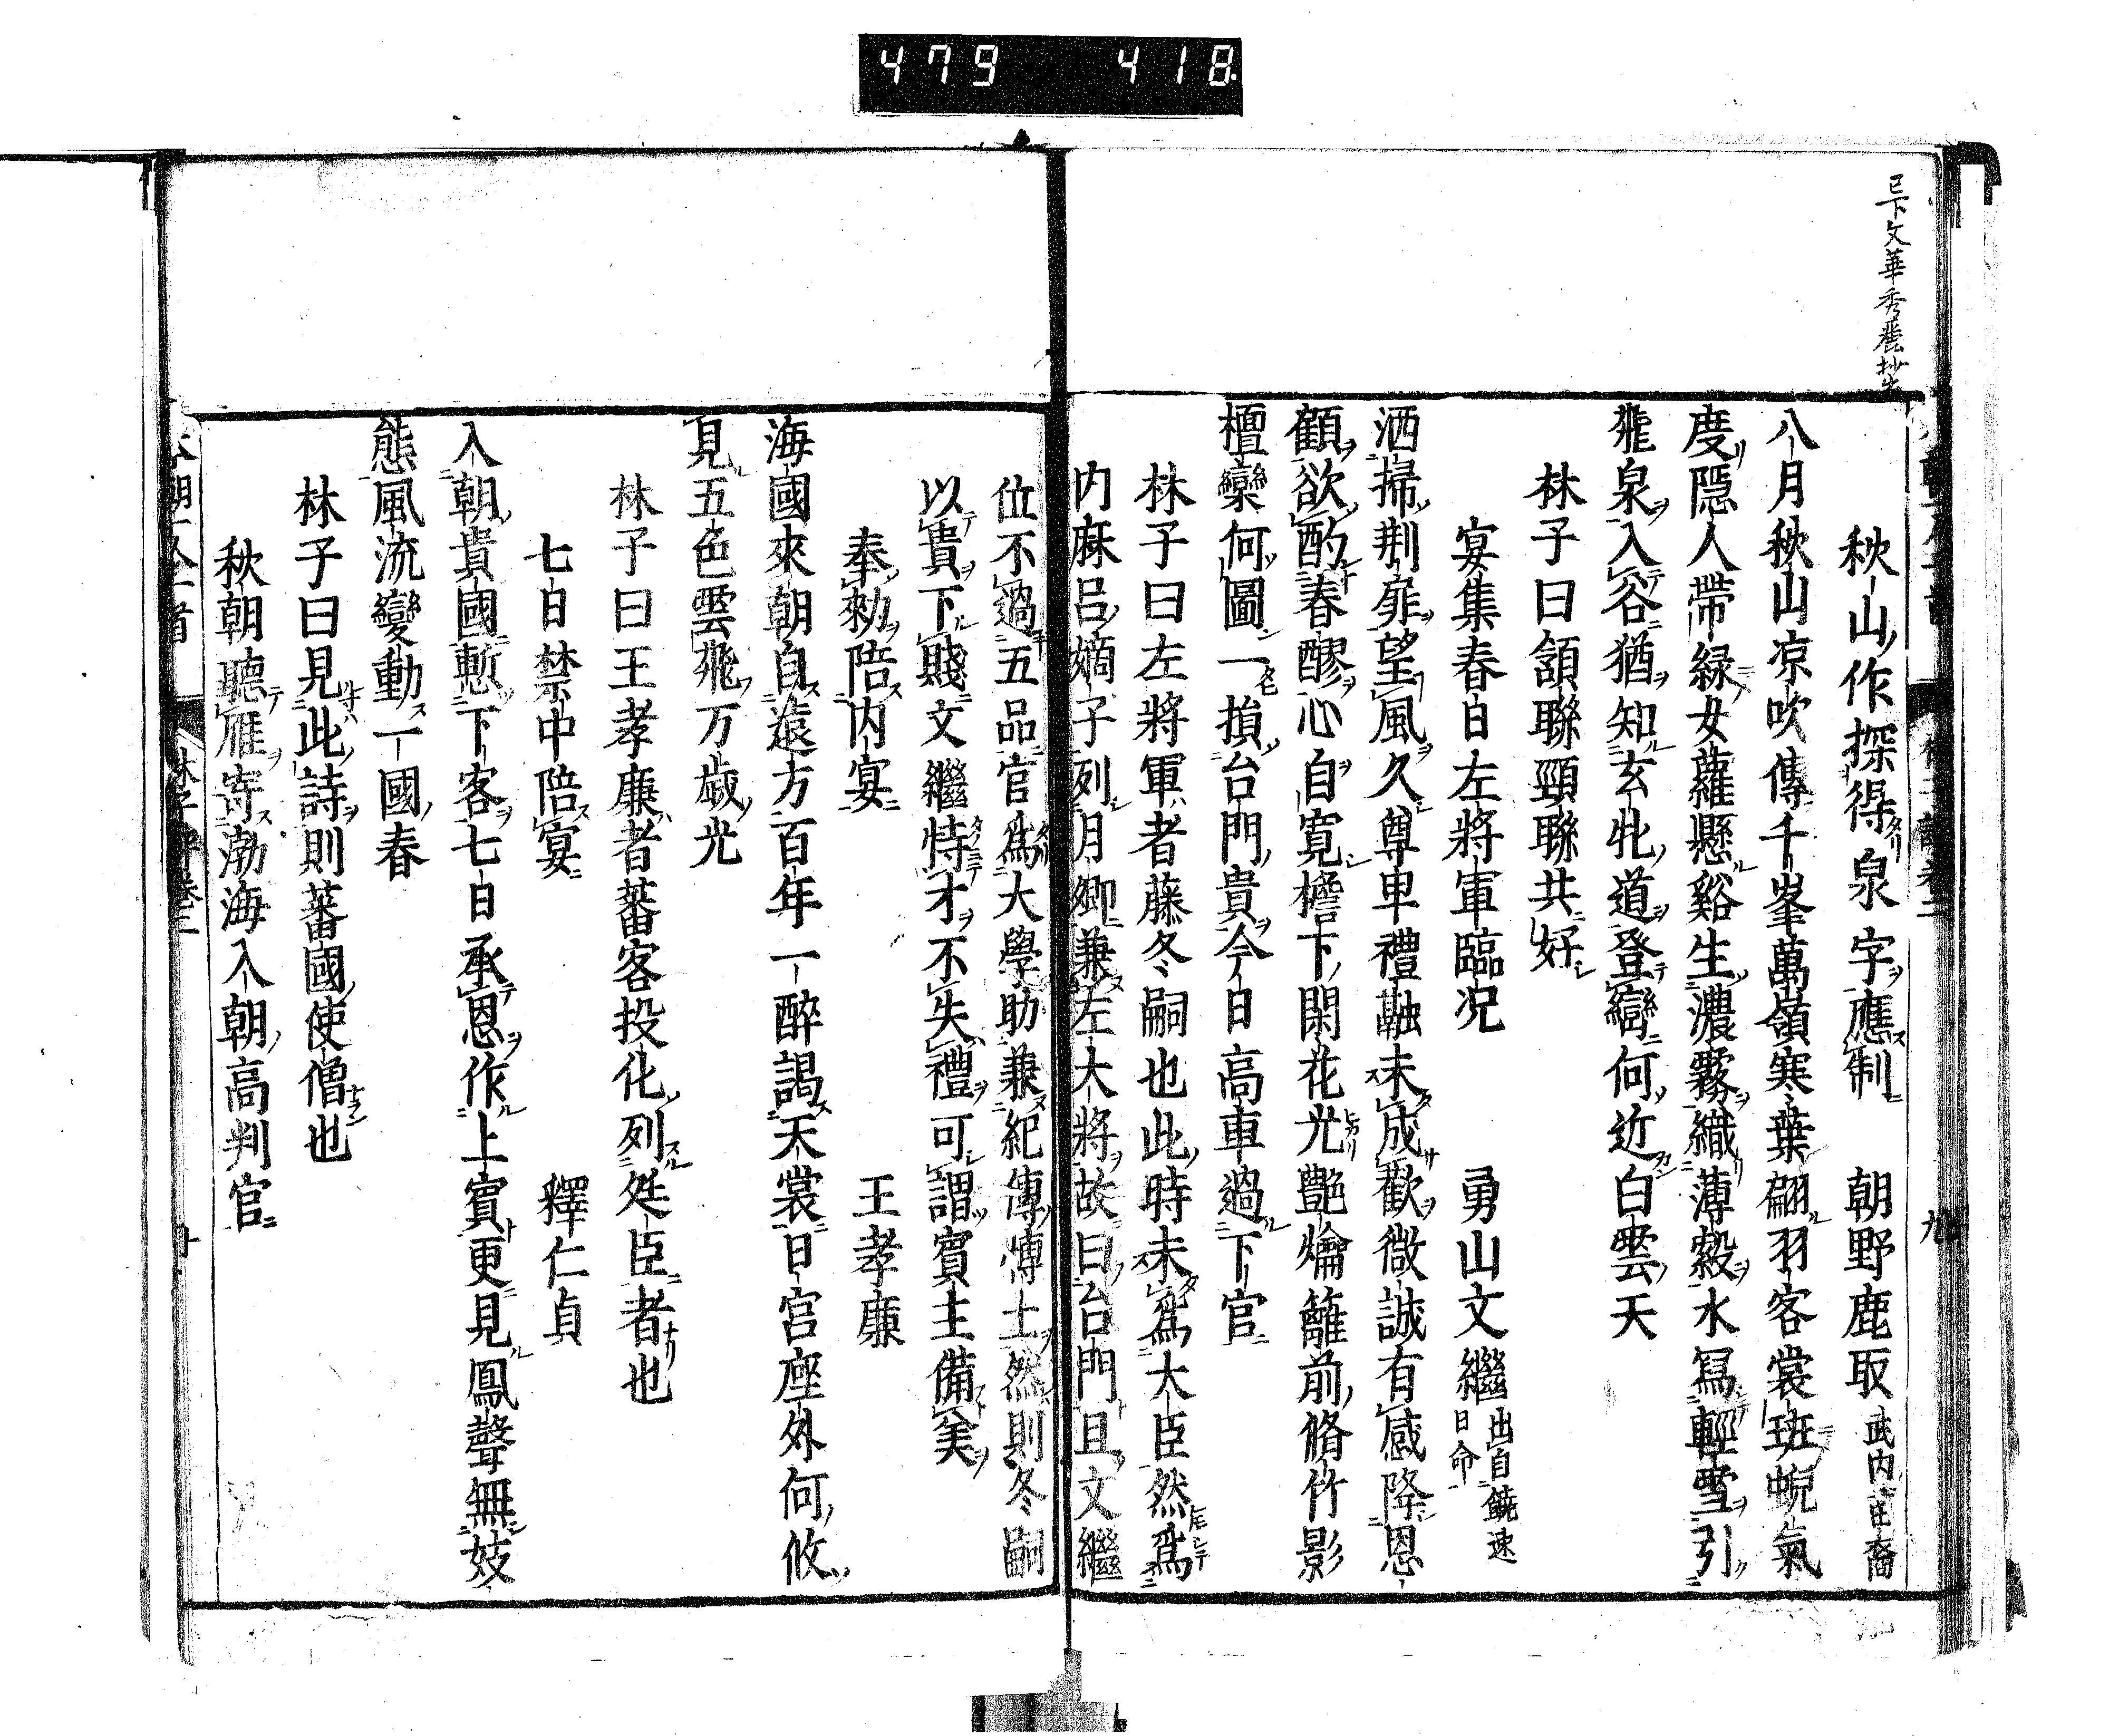 479 418
已下文華秀麗抄出
秋山作探得泉字應制 朝野鹿取 武内裔
八月秋山凉吹傳千峯萬嶺寒葉翩羽客裳班蜺氣
度隱人帶緑女蘿懸谿生濃霧織薄縠水冩輕雪引
飛泉入谷猶知玄牝道登巒何近白雲天
林子曰頷聯頸聯共好
宴集春日左將軍臨况 勇山文繼 出自饒速
日命
洒掃荆扉望風久尊卑禮融未成歡微誠有感降恩
顧欲酌春醪心自寛檐下閑花光艶爚籬前脩竹影
檀欒何圖一損台門貴今日高車過下官
林子曰左將軍者藤冬嗣也此時未爲大臣然爲
内麻呂嫡子列月卿兼左大將故曰台門且文繼
位不過五品官爲大學助兼紀傳博士然則冬嗣
以貴下賤文繼恃才不失禮可謂賓主備美
奉勑陪内宴 王孝廉
海國來朝自遠方百年一醉謁天裳日宮座外何攸
見五色雲飛万歳光
林子曰王孝廉者蕃客投化列廷臣者也
七日禁中陪宴 釋仁貞
入朝貴國慙下客七日承恩作上賓更見鳳聲無妓
態風流變動一國春
林子曰見此詩則蕃國使僧也
秋朝聽雁寄渤海入朝高判官